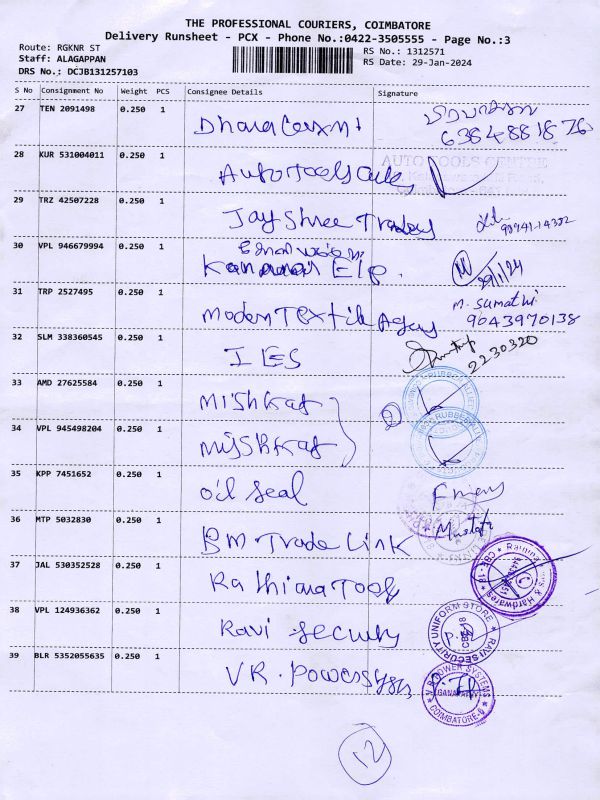 THE PROFESSIONAL COURIERS, COIMBATORE
Delivery Runsheet - PCX - Phone No.:0422-3505555 - Page No.:3
Route: RGKNR ST
Staff: ALAGAPPAN
DRS No.: DCJB131257103
RS No.: 1312571
RS Date: 29-Jan-2024
S No Consignment No Weight PCS Consignee Details Signature
27 TEN 2091498 0.250 1
6384881876
28 KUR 531004011 0.250 1 Auto Tools
AUTO TOOLS CENTRE
29 TRZ 42507228 0.250 1 Jay Shree Traders
30 VPL 946679994 0.250 1
29/1/24
31 TRP 2527495 0.250 1 Modern Textile Agency M. Sumathi
9043970138
32 SLM 338360545 0.250 1 IES
2230320
33 AMD 27625584 0.250 1 Mishkat
2
34 VPL 945498204 0.250 1 Misshkat
35 KPP 7451652 0.250 1 Oil Seal
36 MTP 5032830 0.250 1 BM Trade Link Mustafa
37 JAL 530352528 0.250 1 Rathina Tools
& Hardwares CBE-18
38 VPL 124936362 0.250 1 Ravi Security
RAVI SECURITY UNIFORM STORE CBE-18
39 BLR 5352055635 0.250 1 VR. Power System
V R POWER SYSTEMS GANAPATHY COIMBATORE-6
12